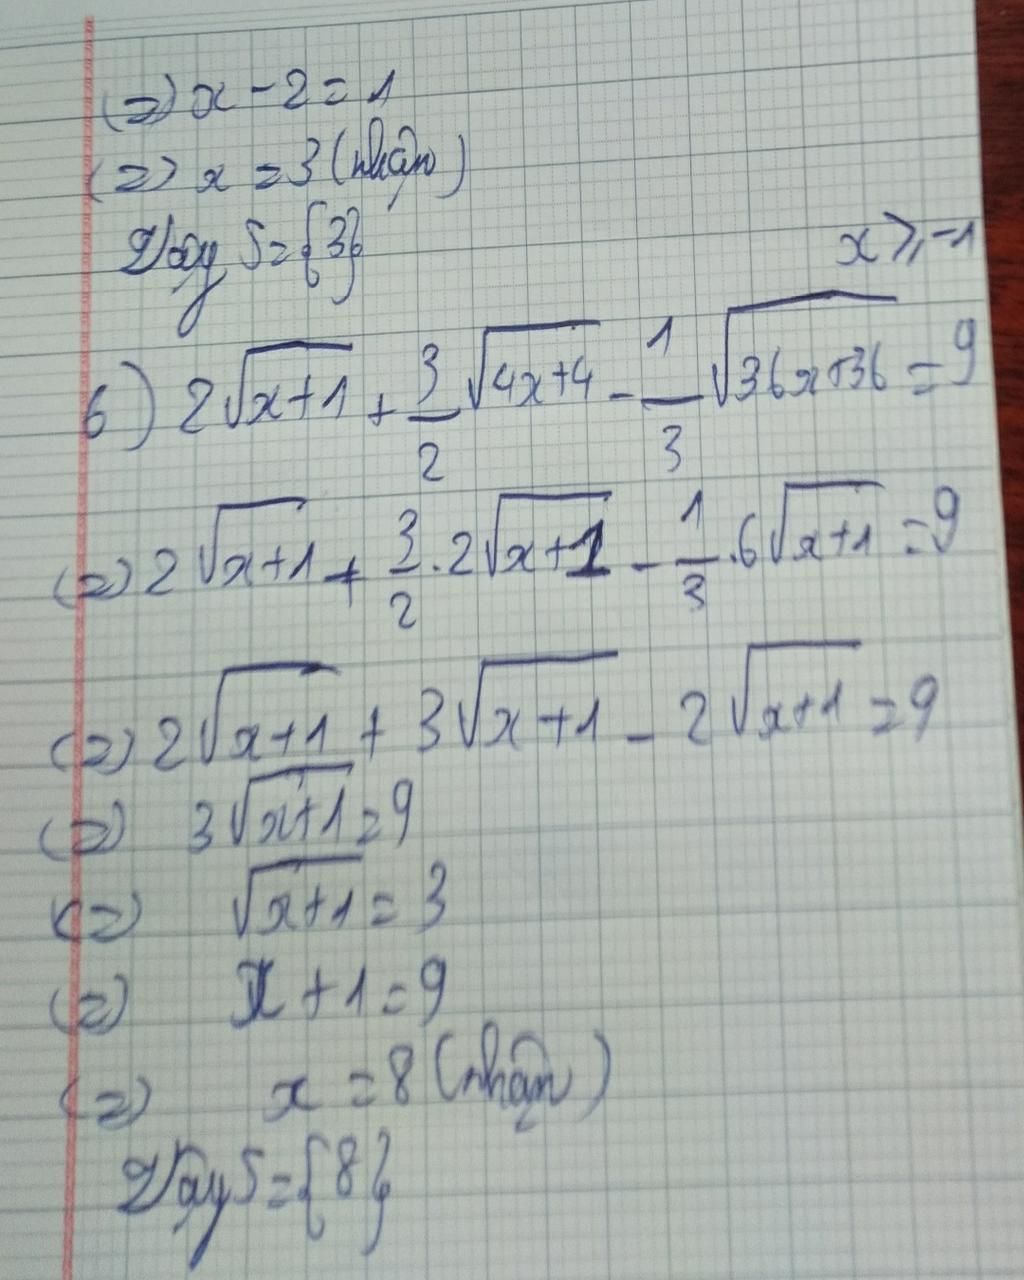 (=) x - 2 = 1
(=) x = 3 (nhận)
Vậy S = {3}
x ⩾ -1
6) 2√(x+1) + 3/2 √(4x+4) - 1/3 √(36x+36) = 9
(=) 2√(x+1) + 3/2 . 2√(x+1) - 1/3 . 6√(x+1) = 9
(=) 2√(x+1) + 3√(x+1) - 2√(x+1) = 9
(=) 3√(x+1) = 9
(=) √(x+1) = 3
(=) x + 1 = 9
(=) x = 8 (nhận)
Vậy S = {8}